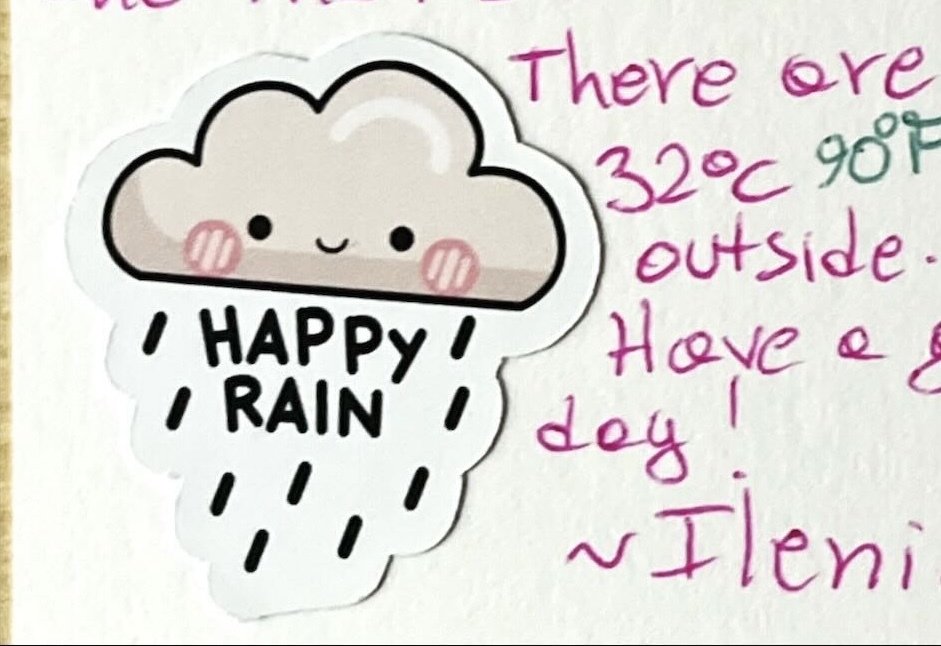 HAPPY
RAIN
There are
32°C 90°F
outside.
Have a
day!
~Ileni